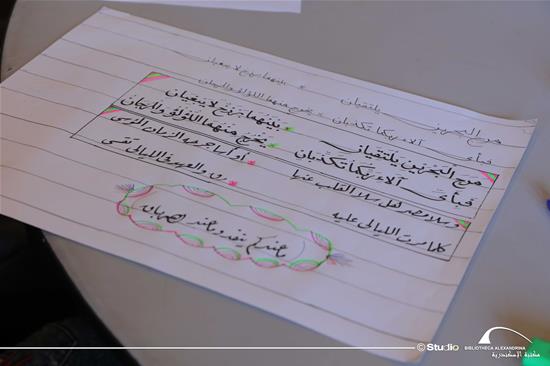 مرج البحرين يلتقيان * بينهما برزخ لا يبغيان
فبأى آلاء ربكما تكذبان * يخرج منهما اللؤلؤ والمرجان
مرج البحرين يلتقيان * بينهما برزخ لا يبغيان
فبأى آلاء ربكما تكذبان * يخرج منهما اللؤلؤ والمرجان
وسلا مصر هل سلا القلب عنها * أو أسا جرحه الزمان المؤسى
كلما مرت الليالى عليه * رق والعهد فى الليالى تقسى
ما عندكم ينفد وما عند الله باق
© Studio
BIBLIOTHECA ALEXANDRINA
مكتبة الإسكندرية